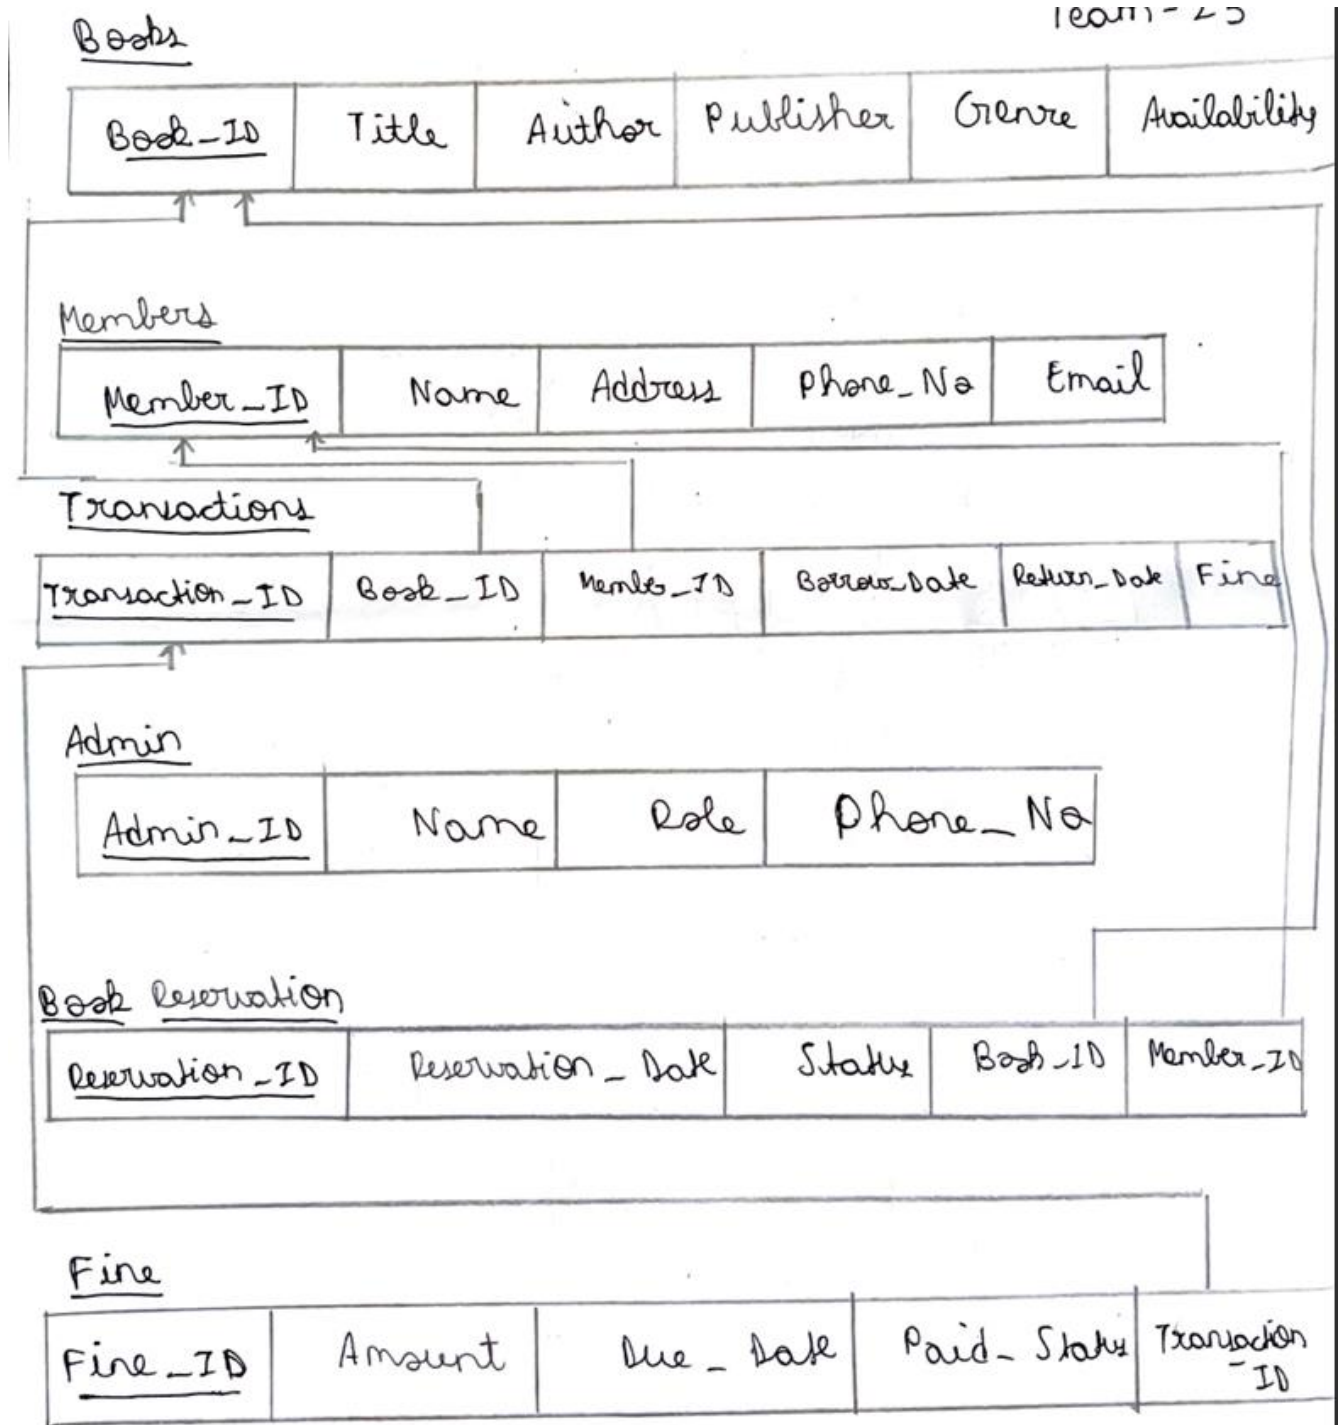 Team-23
Books
Book_ID Title Author Publisher Genre Availability
Members
Member_ID Name Address Phone_No Email
Transactions
Transaction_ID Book_ID Member_ID Borrow_Date Return_Date Fine
Admin
Admin_ID Name Role Phone_No
Book Reservation
Reservation_ID Reservation_Date Status Book_ID Member_ID
Fine
Fine_ID Amount Due_Date Paid_Status Transaction
_ID